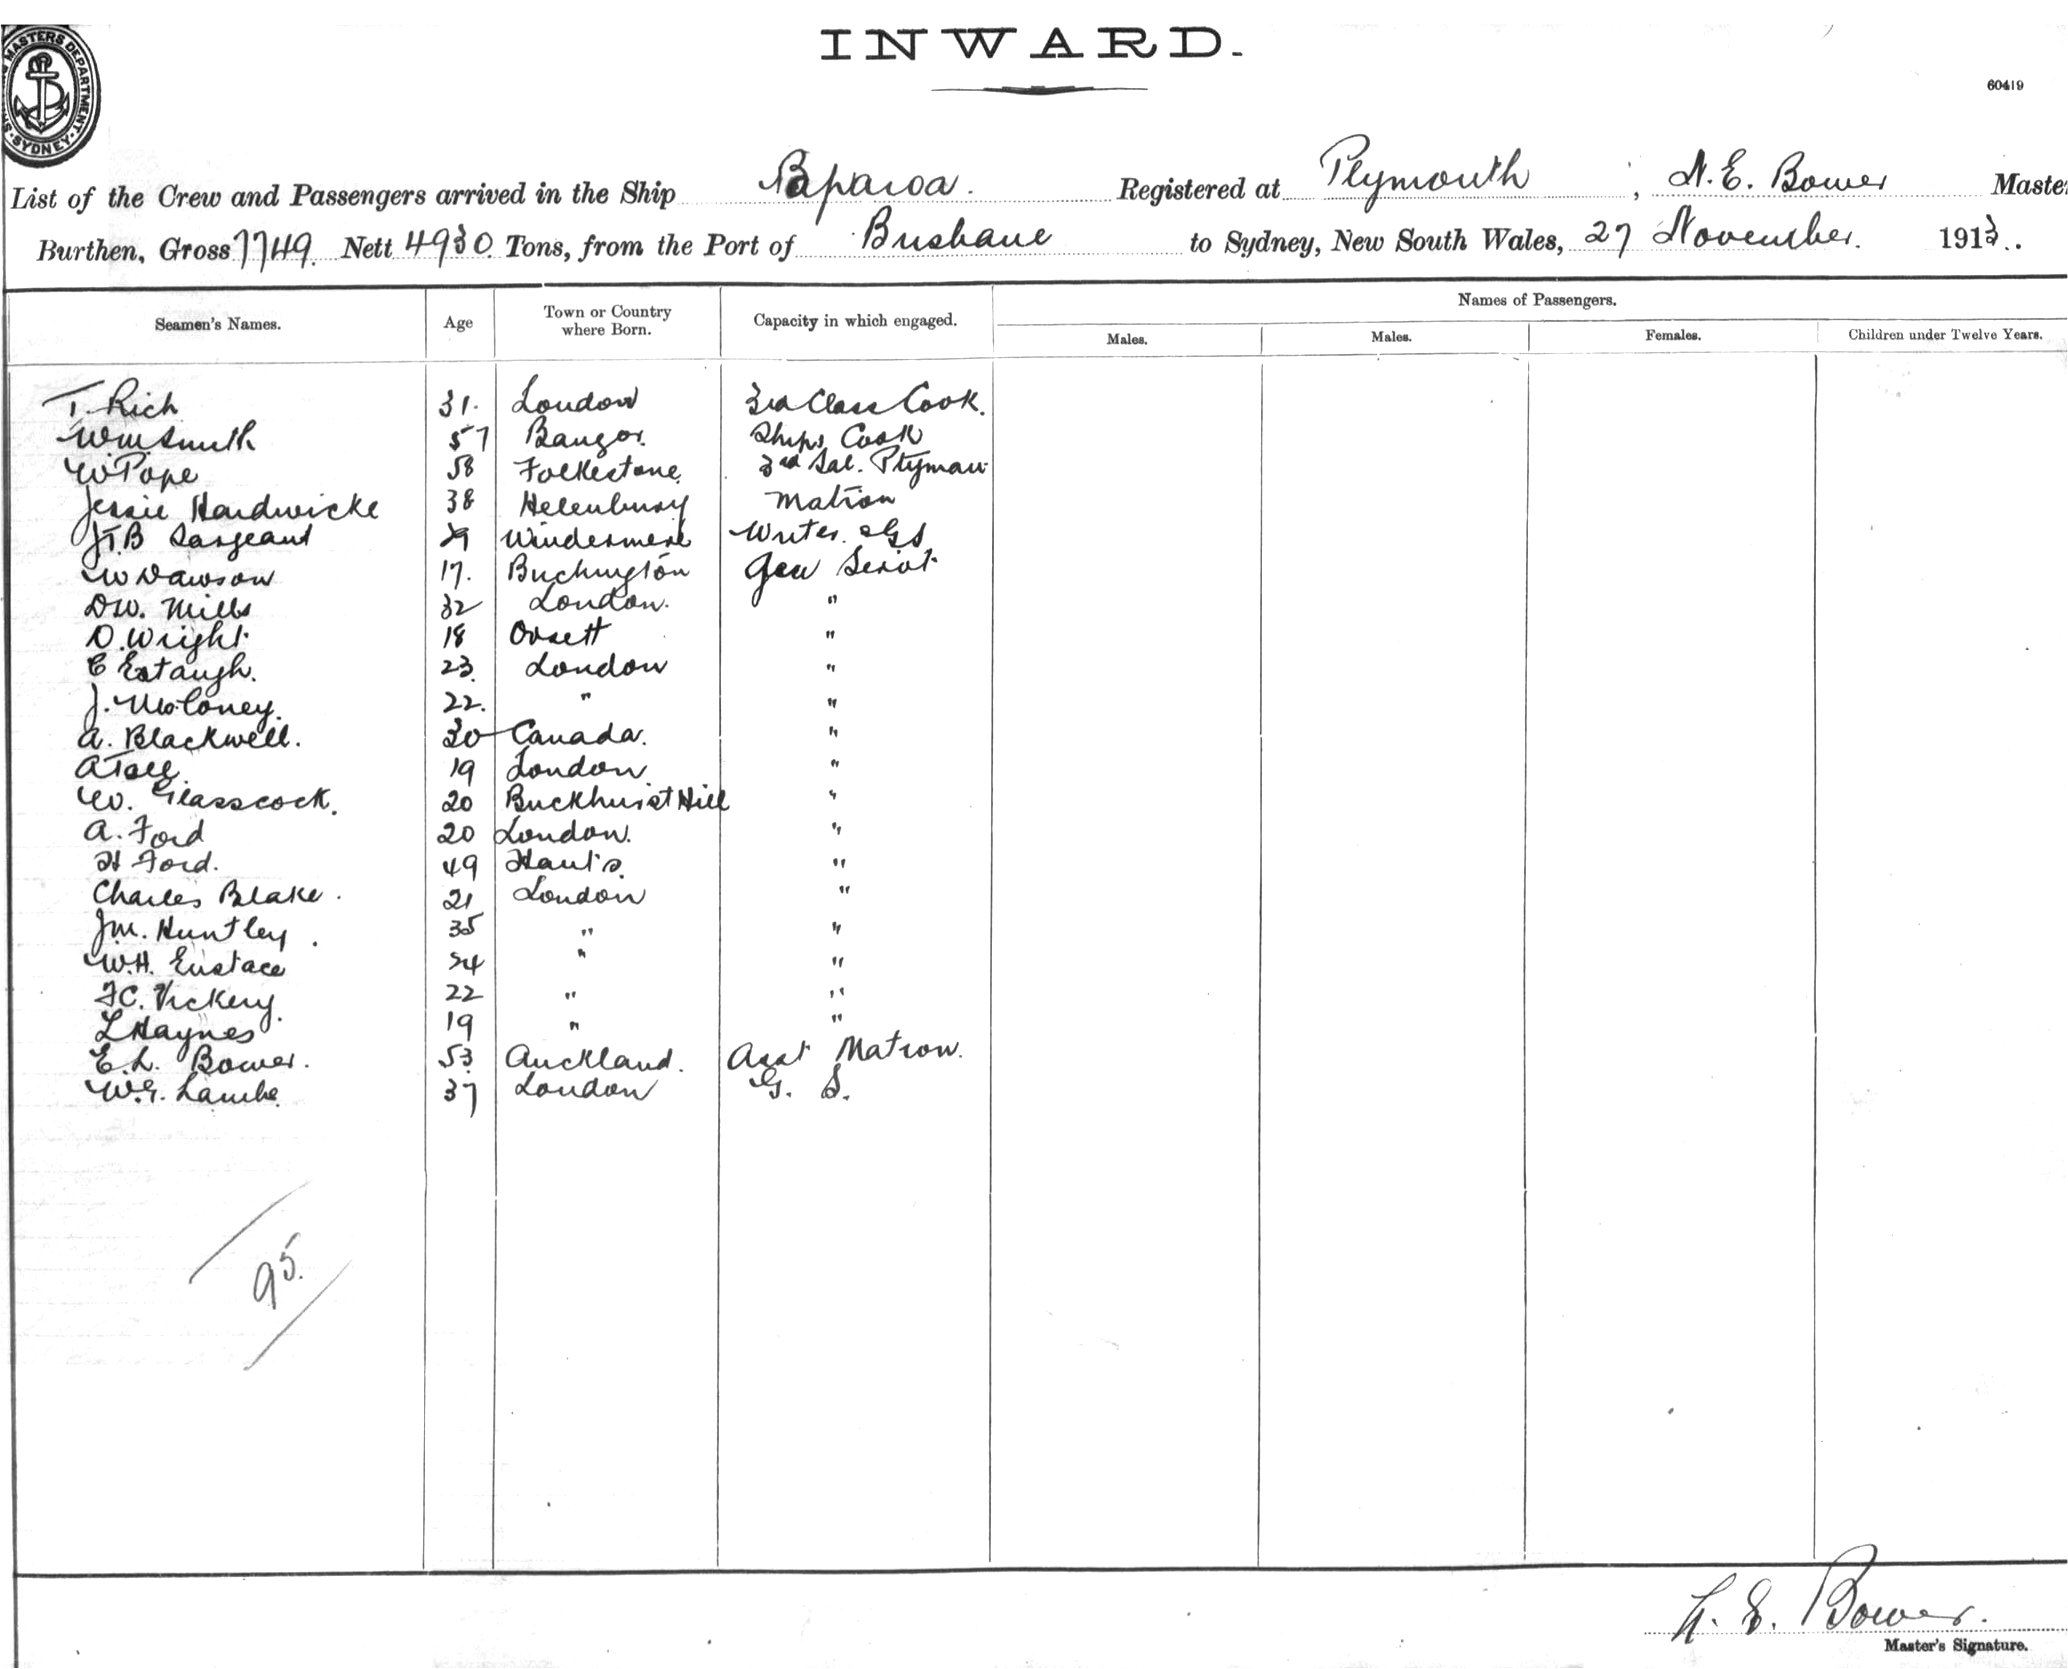 INWARD.
MASTERS DEPARTMENT
SYDNEY
60419
List of the Crew and Passengers arrived in the Ship Paparoa. Registered at Plymouth ; N. E. Bower Master
Burthen, Gross 7749. Nett 4930 Tons, from the Port of Brisbane to Sydney, New South Wales, 27 November. 1913..
Seamen's Names. Age Town or Country where Born. Capacity in which engaged. Names of Passengers.
Males. Males. Females. Children under Twelve Years.
T. Rich 31. London 3rd Class Cook.
Wm Smith 57 Bangor. Ships Cook
W Pope 58 Folkestone. 3rd Sal. Ptyman
Jessie Hardwicke 38 Helenbury Matron
J.T.B Sargeant Windermere Writer & GS
W Dawson 17. Buckington Gen Servt.
D.W. Mills 32 London. "
D. Wright 18 Orsett "
C Estaugh. 23. London "
J. Moloney. 22. " "
A. Blackwell. 30 Canada. "
A Tall. 19 London "
W. Glasscock. 20 Buckhurst Hill "
A. Ford 20 London. "
H Ford. 49 Hants. "
Charles Blake. 21 London "
J.M. Huntley. 35 " "
W.H. Eustace 24 " "
F.C. Vickery. 22 " "
L Haynes 19 " "
E. L. Bower. 53 Auckland. Asst Matron.
W.G. Lambe. 37 London G. S.
95.
N. E. Bower.
Master's Signature.